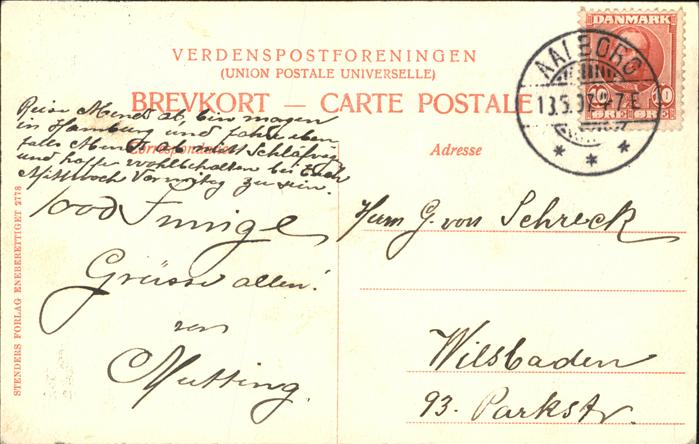 VERDENSPOSTFORENINGEN
(UNION POSTALE UNIVERSELLE)
BREVKORT — CARTE POSTALE
Correspondance
Adresse
DANMARK
10 10
ØRE ØRE
AALBORG
13.5.07. 4-7 E
Reise Abend ab, bin morgen
in Hamburg und fahre eben
falls Abends ab mit Schlafwg
und hoffe wohlbehalten bei Euch
Mittwoch Vormittag zu sein.
1000 Innige
Grüsse allen!
von
Mutting.
Herrn G. von Schreck
Wiesbaden
93. Parkstr.
STENDERS FORLAG ENEBERETTIGET 2778